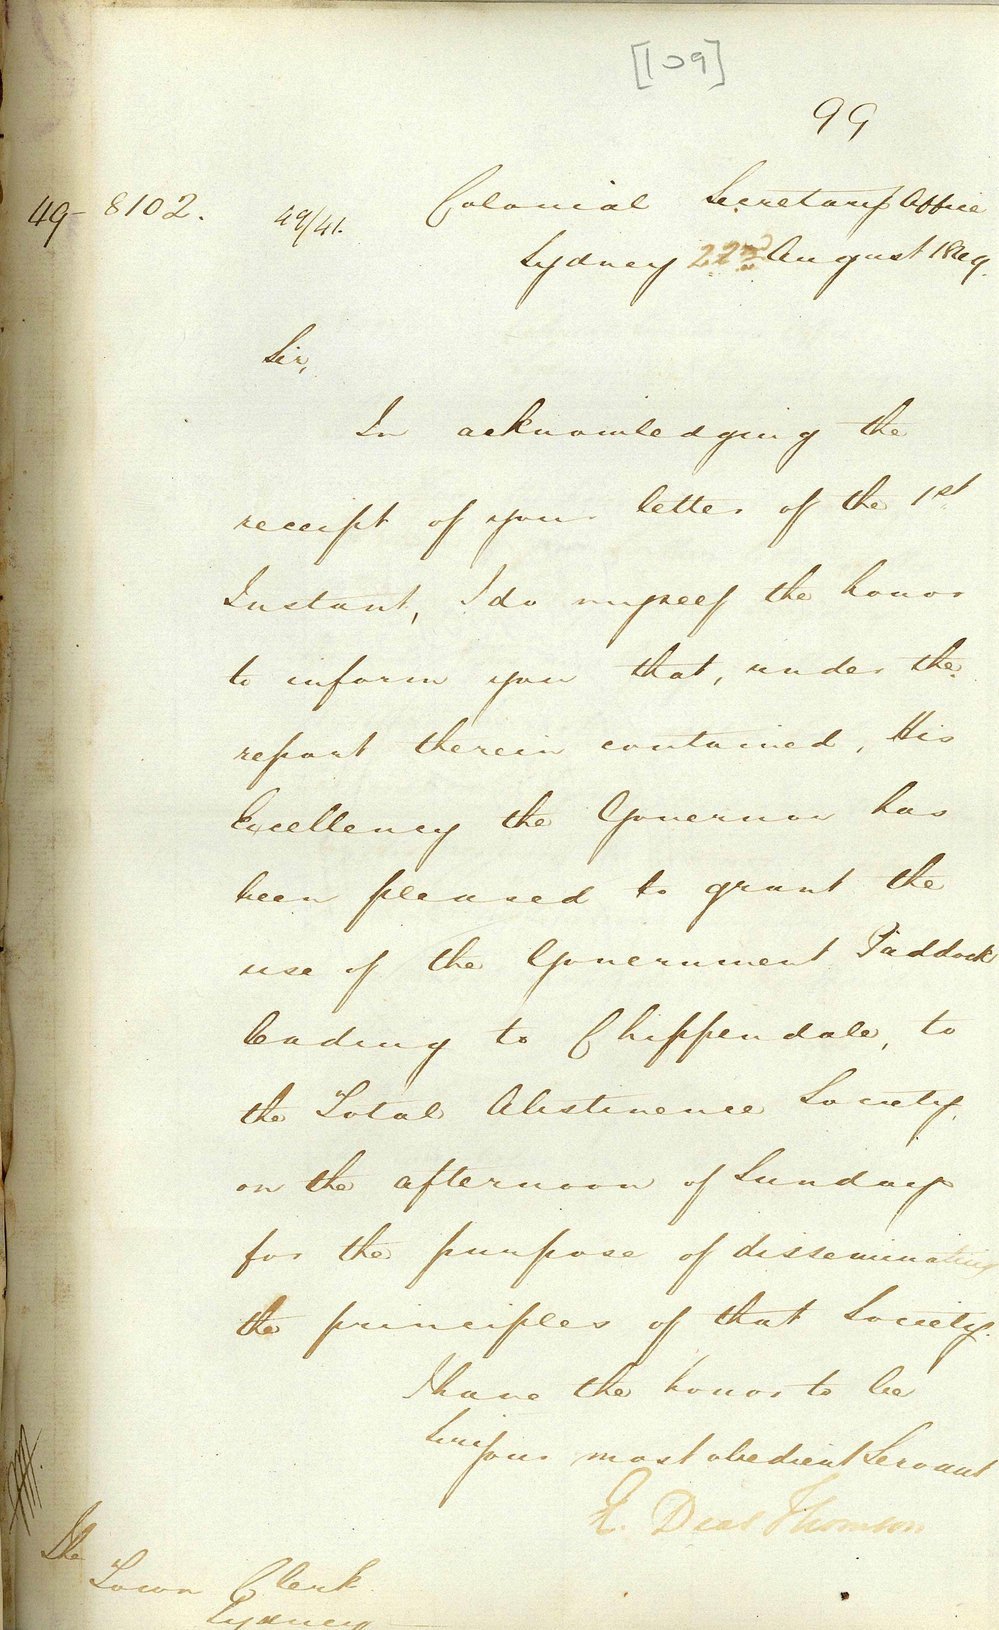 [109]
99
49-8102. 49/41. Colonial Secretary Office
Sydney 22nd August 1849.
Sir,
In acknowledging the
receipt of your letter of the 1st
Instant, I do myself the honor
to inform you that, under the
report therein contained, His
Excellency the Governor has
been pleased to grant the
use of the Government Paddock
leading to Chippendale, to
the Total Abstinence Society,
on the afternoon of Sunday
for the purpose of disseminating
the principles of that Society.
I have the honor to be
Sir, your most obedient Servant
E. Deas Thomson
The
Town Clerk
Sydney